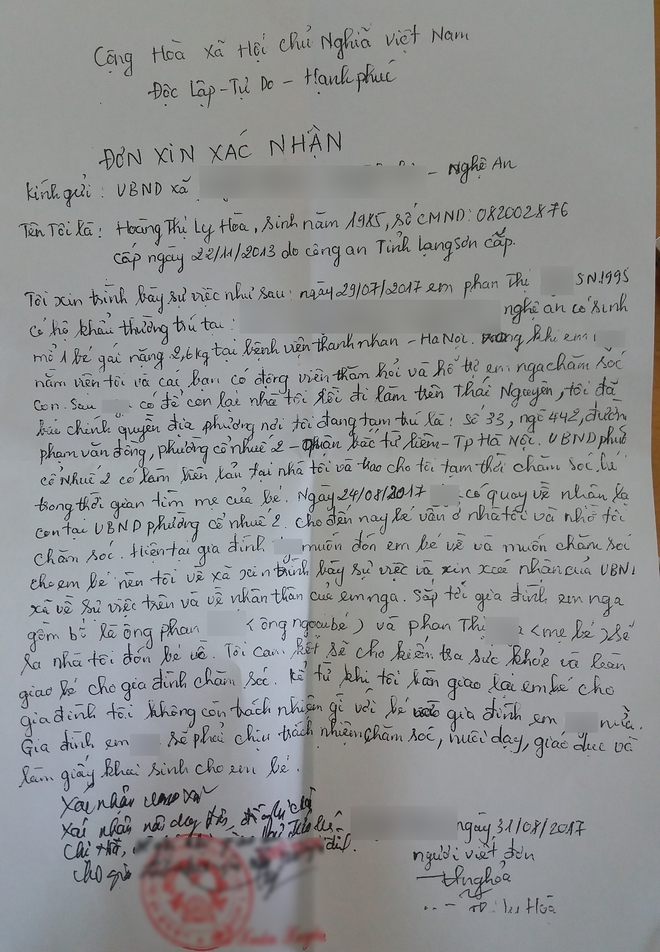 Cộng Hoà Xã Hội Chủ Nghĩa Việt Nam
Độc Lập - Tự Do - Hạnh phúc
ĐƠN XIN XÁC NHẬN
Kính gửi: UBND xã - Nghệ An
Tên Tôi là: Hoàng Thị Ly Hòa, sinh năm 1985, số CMND: 082002876
cấp ngày 22/11/2013 do công an Tỉnh Lạng Sơn cấp.
Tôi xin trình bày sự việc như sau: ngày 29/07/2017 em phan Thị SN.1995
có hộ khẩu thường trú tại: nghệ an có sinh
mổ 1 bé gái nặng 2,6kg tại bệnh viện thanh nhan - Hà Nội. Trong khi em
nằm viện tôi và các bạn có động viên thăm hỏi và hỗ trợ em nga chăm sóc
con. Sau có để con lại nhà tôi rồi đi làm trên Thái Nguyên, tôi đã
báo chính quyền địa phương nơi tôi đang tạm trú là: số 33, ngõ 442, đường
phạm văn đồng, phường cổ nhuế 2 - Quận bắc từ liêm - Tp Hà Nội. UBND phường
cổ nhuế 2 có làm biên bản tại nhà tôi và trao cho tôi tạm thời chăm sóc bé
trong thời gian tìm mẹ của bé. Ngày 24/08/2017 có quay về nhận là
con tại UBND phường cổ nhuế 2. Cho đến nay bé vẫn ở nhà tôi và nhờ tôi
chăm sóc. Hiện tại gia đình muốn đón em bé về và muốn chăm sóc
cho em bé nên tôi về xã xin trình bày sự việc và xin xác nhận của UBND
xã về sự việc trên và về nhân thân của em nga. Sắp tới gia đình em nga
gồm bố là ông phan < ông ngoại bé > và phan Thị < mẹ bé > sẽ
ra nhà tôi đón bé về. Tôi cam kết sẽ cho kiểm tra sức khỏe và bàn
giao bé cho gia đình chăm sóc. Kể từ khi tôi bàn giao lại em bé cho
gia đình tôi không còn trách nhiệm gì với bé gia đình em nữa.
Gia đình em sẽ phải chịu trách nhiệm chăm sóc, nuôi dạy, giáo dục và
làm giấy khai sinh cho em bé.
Xác nhận
Xác nhận
ngày 31/08/2017
người viết đơn